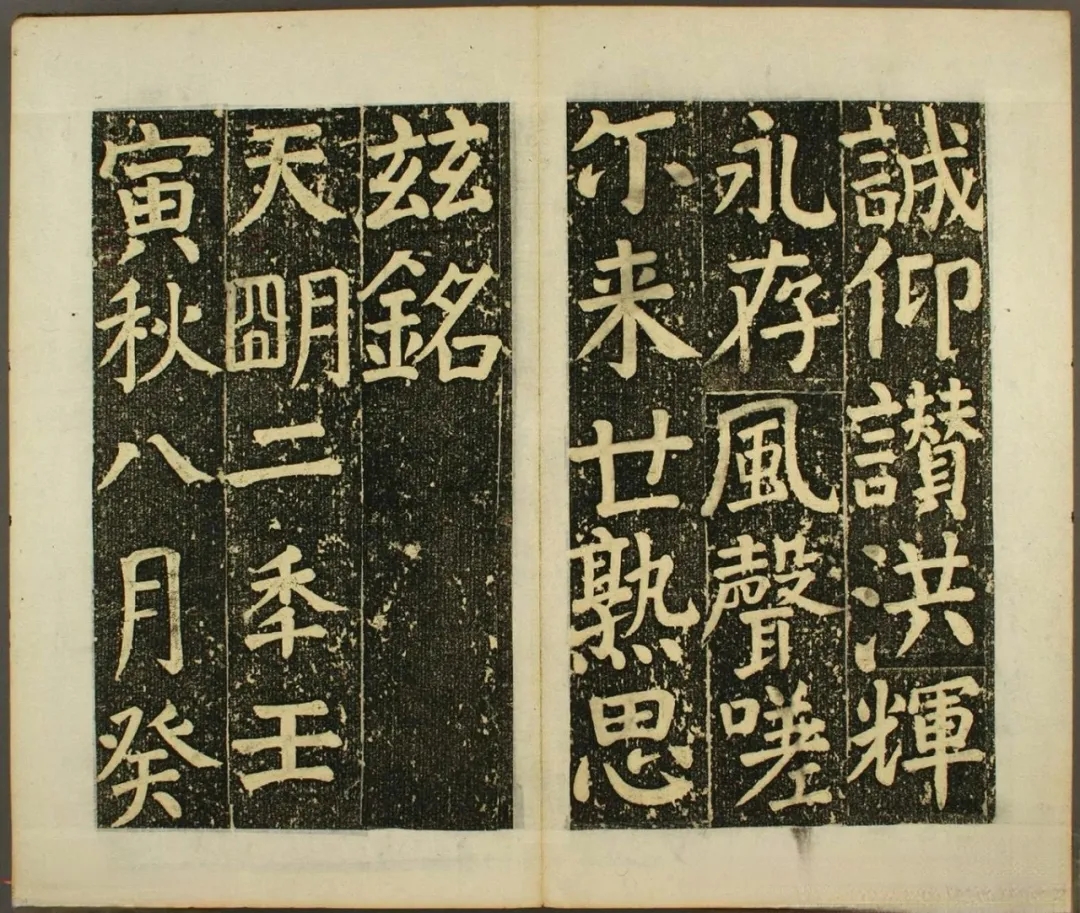 誠仰讃洪輝
永存風聲嗟
尒来廿熟思
玆銘
天朙二秊壬
寅秋八月癸